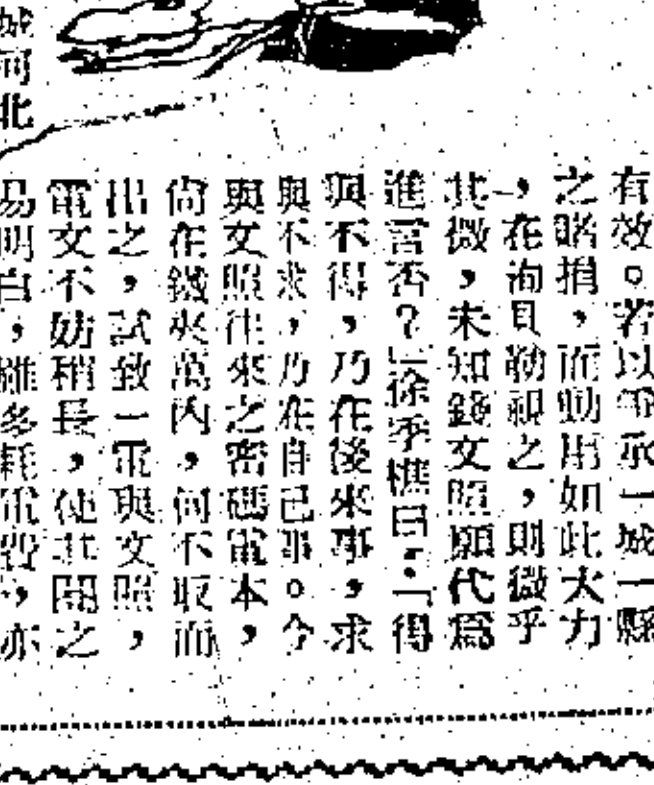 有效。若以需承一城一縣
之賂捐，而動用如此大力
，在洵貝勒視之，則微乎
其微，未知錢文照願代爲
進言否？」徐季樵曰：「得
與不得，乃在後來事，求
與不求，乃在自己事。今
與文照往來之密碼電本，
尙在鐵夾萬內，何不取而
出之，試致一電與文照，
電文不妨稍長，使其閱之
易明白，雖多耗電費，亦
城河北